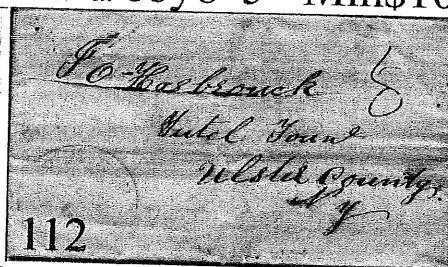 F O Hasbrouck
8
Tutel Town
Ulster County
N Y
112